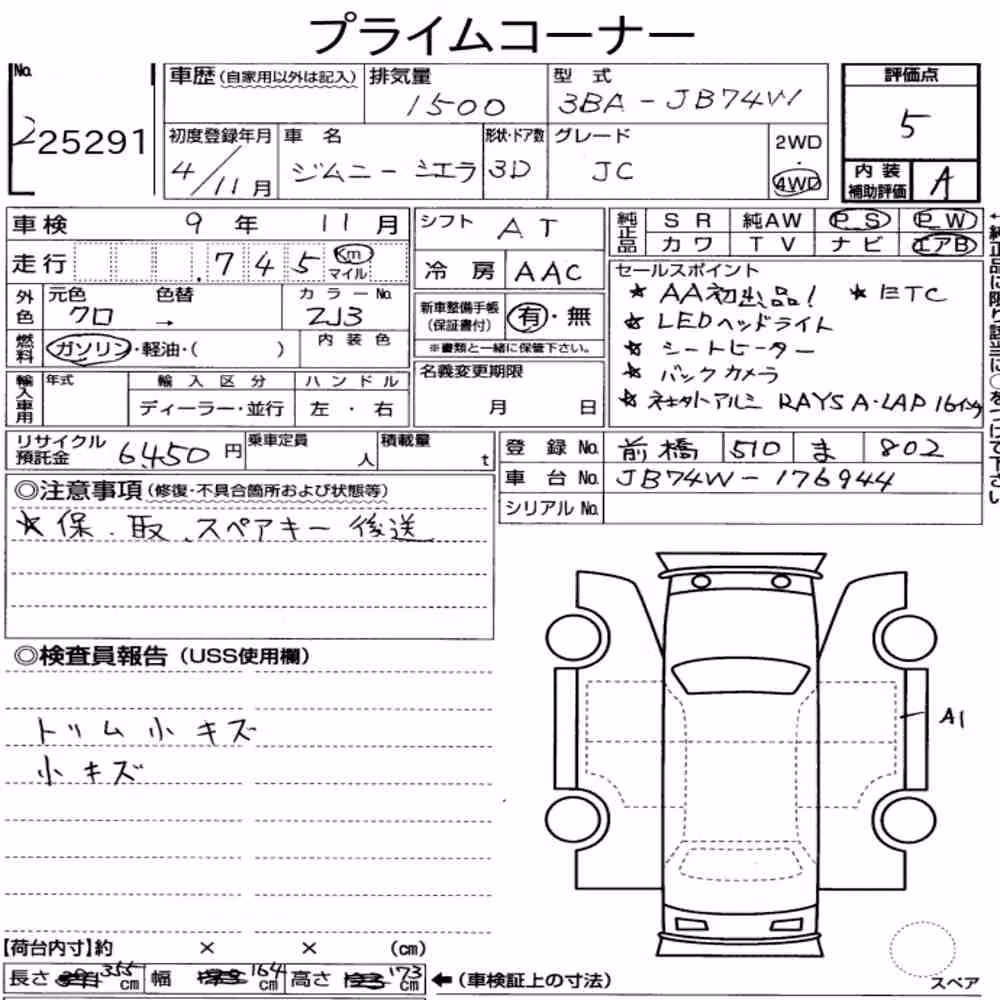 プライムコーナー
No. 225291
車歴(自家用以外は記入) 排気量 1500 型式 3BA-JB74W
初度登録年月 4/11月 車名 ジムニーシエラ 形状・ドア数 3D グレード JC 2WD・4WD
評価点 5
内装補助評価 A
車検 9年 11月
走行 745 Km マイル
外色 元色 クロ → 色替 カラーNo. ZJ3
燃料 ガソリン・軽油・( ) 内装色
輸入車用 年式 輸入区分 ディーラー・並行 ハンドル 左・右
シフト AT
冷房 AAC
新車整備手帳(保証書付) 有・無
※書類と一緒に保管下さい。
名義変更期限 月 日
純正品 SR 純AW PS PW
カワ TV ナビ エアB
セールスポイント
★ AA初出品! ★ ETC
★ LEDヘッドライト
★ シートヒーター
★ バックカメラ
★ ネオクトアルミ RAYS A・LAP 16インチ
←純正品に限り該当に○をつけて下さい
リサイクル預託金 6450円 乗車定員 人 積載量 t
登録No. 前橋 510 ま 802
車台No. JB74W-176944
シリアルNo.
◎注意事項(修復・不具合箇所および状態等)
★保、取、スペアキー後送
◎検査員報告(USS使用欄)
トリム小キズ
小キズ
A1
【荷台内寸】約 × × (cm)
長さ 355cm 幅 164cm 高さ 173cm ←(車検証上の寸法)
スペア